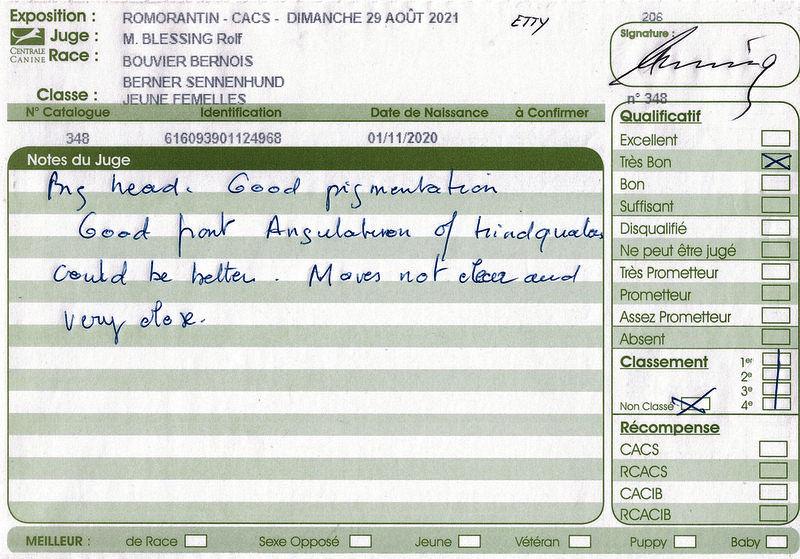 Exposition : ROMORANTIN - CACS - DIMANCHE 29 AOÛT 2021
ETTY
206
CENTRALE CANINE
Juge : M. BLESSING Rolf
Race : BOUVIER BERNOIS
BERNER SENNENHUND
Classe : JEUNE FEMELLES
Signature :
n° 348
N° Catalogue Identification Date de Naissance à Confirmer
348 616093901124968 01/11/2020
Notes du Juge
Big head. Good pigmentation
Good front Angulation of hindquaters
could be better. Moves not clear and
very close.
Qualificatif
Excellent
Très Bon
Bon
Suffisant
Disqualifié
Ne peut être jugé
Très Prometteur
Prometteur
Assez Prometteur
Absent
Classement 1er
2e
3e
Non Classé 4e
Récompense
CACS
RCACS
CACIB
RCACIB
MEILLEUR : de Race Sexe Opposé Jeune Vétéran Puppy Baby